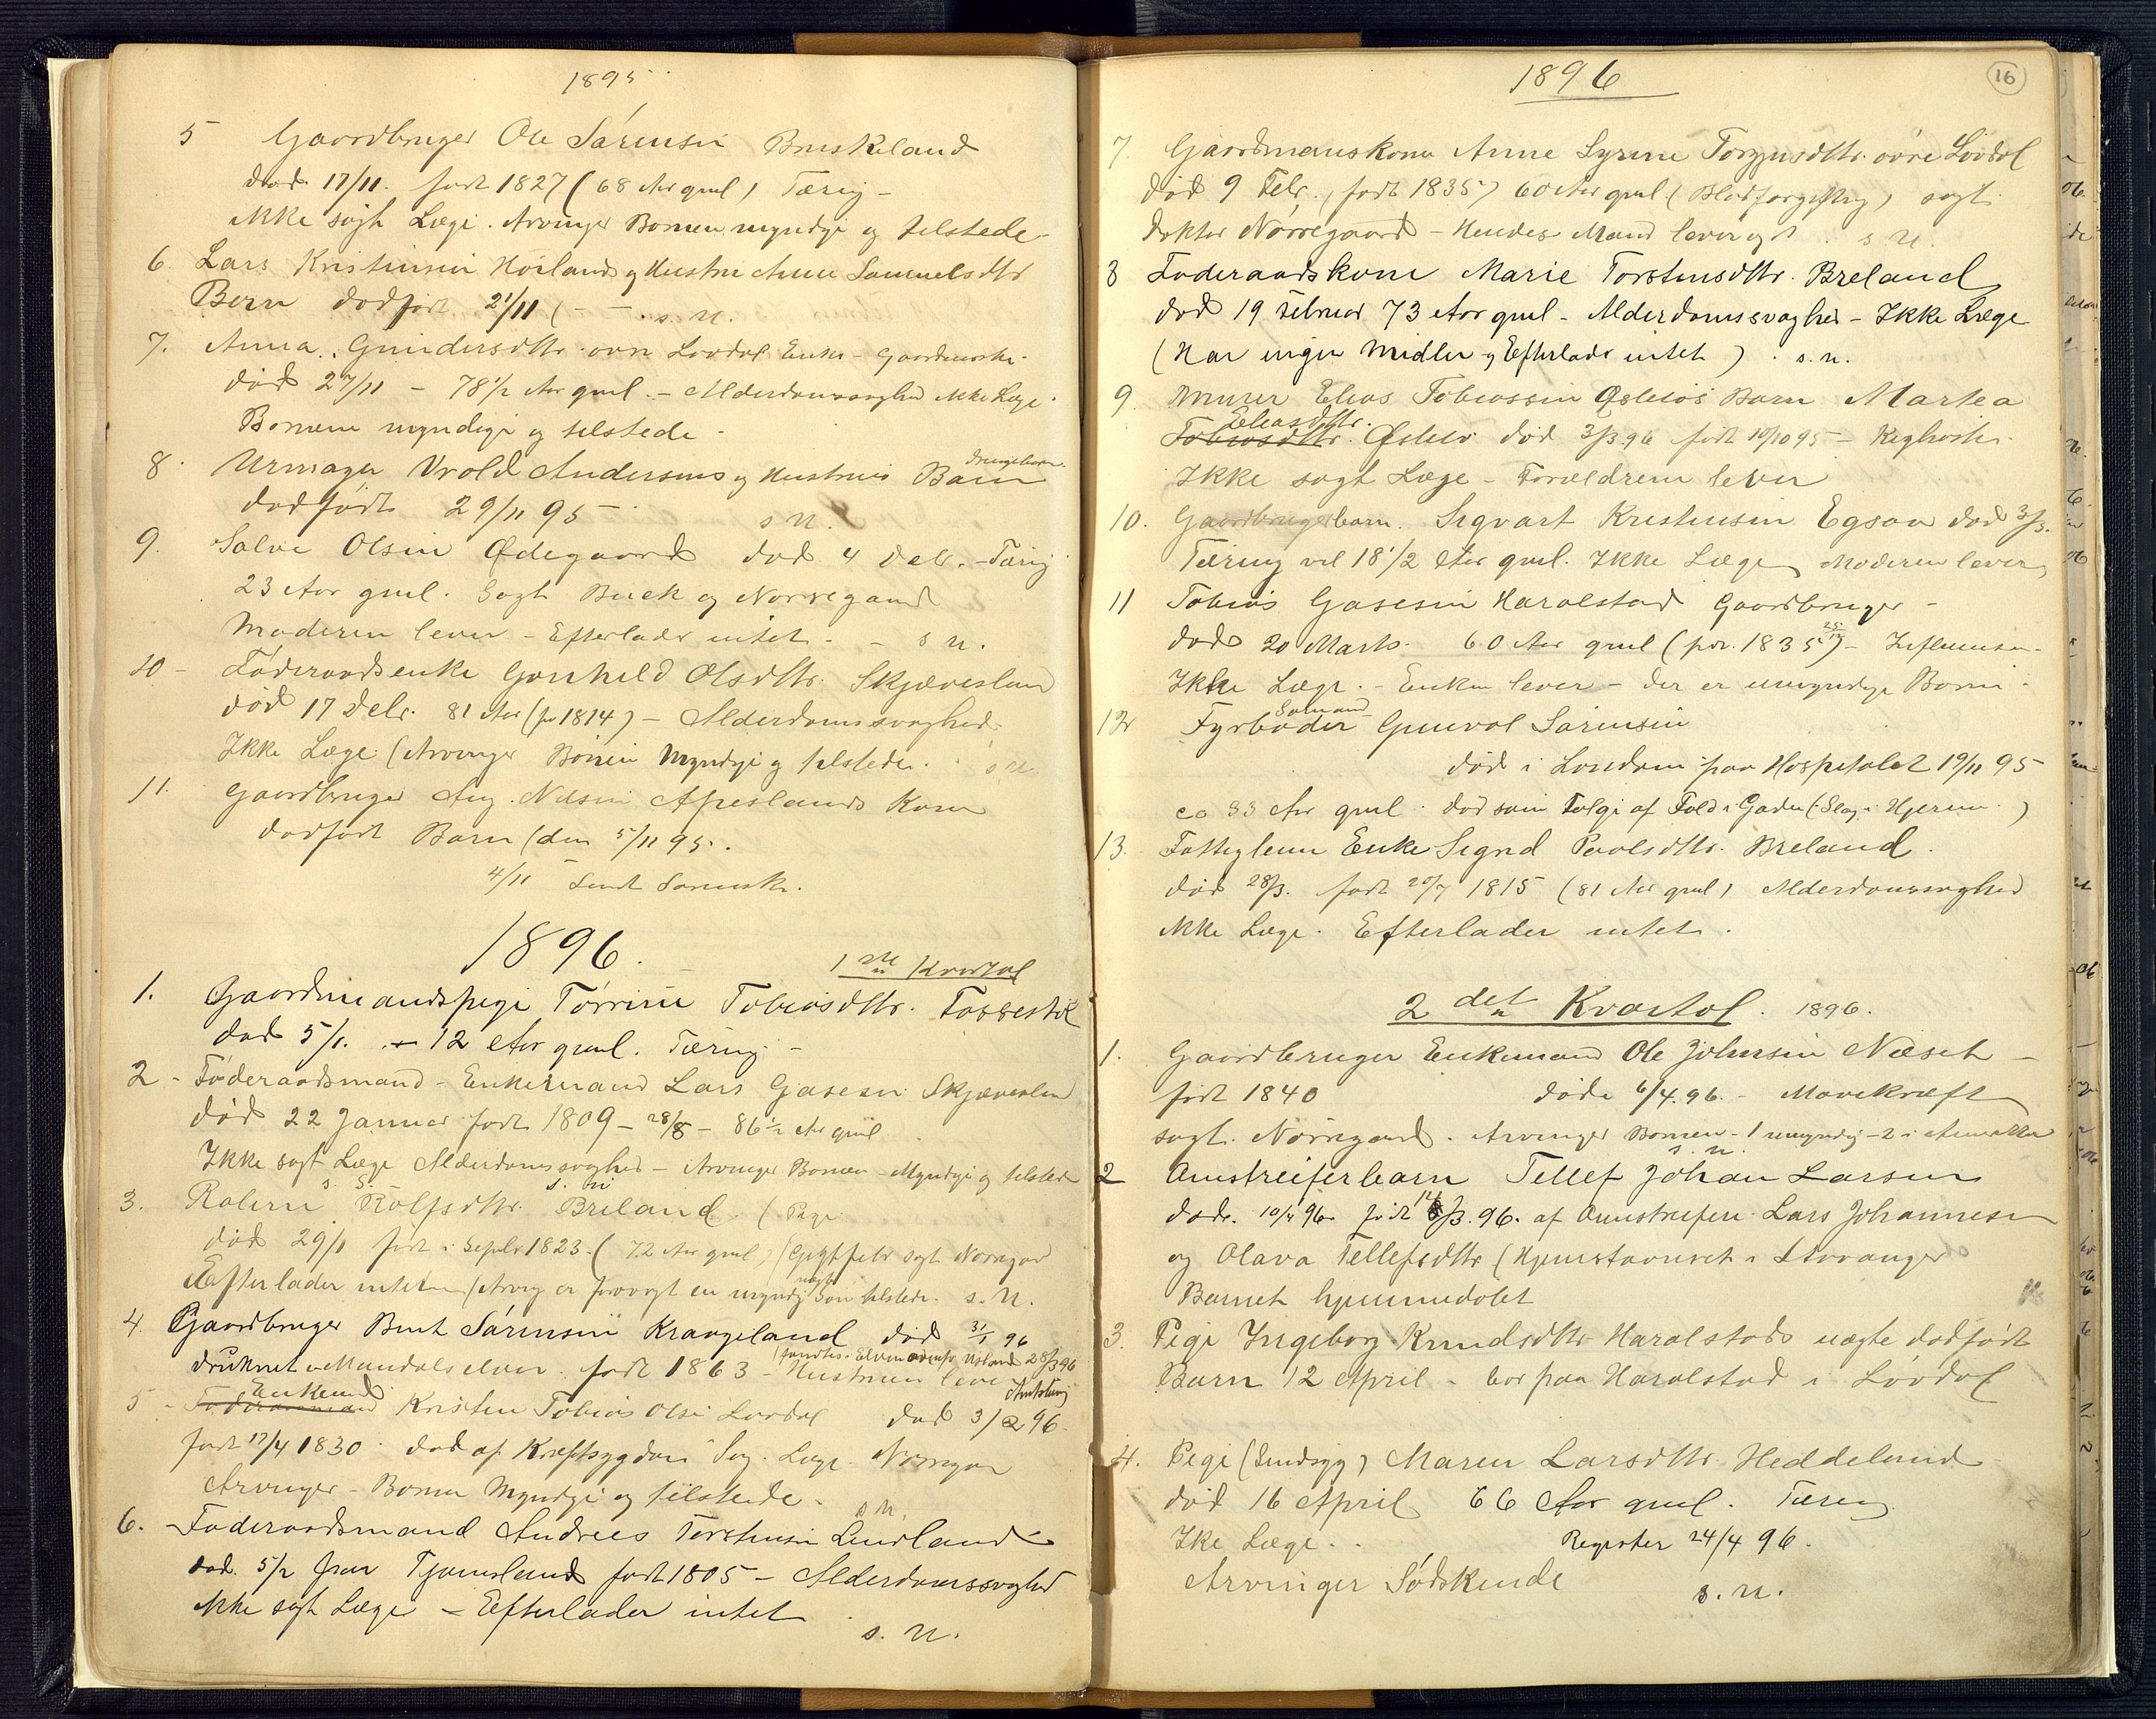 1895
5 Gaardbruger Ole Sørensen Bruskeland
død 17/11. født 1827 (68 Aar gml) Tæring -
ikke søgt Læge. Arvinger Børnene myndige og tilstede
6. Lars Kristensen Høiland og Hustru Anne Samuelsdttr
Børn dødfødt 21/11 ( - - . s. n.
7. Anna Gundersdttr. øvre Løvdal Enke - Gaardmands.
død 27/11 - 78 1/2 Aar gml. - Alderdomssvaghed ikke Læge.
Børnene myndige og tilstede -
8. Urmager Vrold Andersens og Hustrues Barn drengebarn.
dødfødt 29/11 95 - s n.
9. Salve Olsen Ødegaard død 4 Debr. - Tæring
23 Aar gml. Søgt Buck og Nørregaard
Moderen lever - Efterlader intet - - s n.
10 - Føderaadsenke Gunhild Olsdttr. Skjævesland
død 17 Debr. 81 Aar (fø 1814) - Alderdomssvaghed
Ikke Læge (Arvinger Børnene Myndige og tilstede. s n
11. Gaardbruger Aug. Nilsen Abeslands Kone
dødfødt Barn (den 5/11 95 .
4/11 Sendt Sorensk.
1896.
1ste Kvartal
1. Gaardmandspige Tørrine Tobiasdttr. Fossestøl
død 5/1. - 12 Aar gml. Tæring -
2 - Føderaadsmand - Enkemand Lars Gasesen Skjævesland
død 22 Januar født 1809 - 28/8 - 86 1/2 Aar gml
Ikke søgt Læge Alderdomssvaghed - Arvinger Børnene - Myndige og tilstede
s. n
3. Rolerri Rolfsdttr. Breland. ( Pige
død 29/1 født i Septbr 1823. ( 72 Aar gml) (Gigtfeber søgt Nørregaar
Efterlader intet (Arving er forøvrigt en myndig uægte Søn tilstede. s. n.
4. Gaardbruger Bent Sørensen Kraageland død 31/1 96
druknet i Mandalselven. født 1863 - Hustruen lever (fundtes i Elven nedenfor Usland 28/3 96
5 - Føderaadsmand Enkemd Kristen Tobias Olsen Løvdal død 3/2 96.
født 17/4 1830. død af Kræftsygdom Søg. Læge Nørregaar
Arvinger - Børnene Myndige og tilstede. s n.
6. Føderaadsmand Andreas Torstensen Lindland
død. 5/2 paa Tjomsland født 1805 - Alderdomssvaghed
ikke søgt Læge - Efterlader intet
s. n.
1896
16
7. Gaardmandskone Anne Syrine Torgensdttr. øvre Løvdal
død 9 Febr. født 1835) 60 Aar gml (Blodforgiftning) søgt
doktor Nørregaard - Hendes Mand lever og . s n.
8 Føderaadskone Marie Torstensdttr. Breland
død 19 Februar 73 Aar gml - Alderdomssvaghed - Ikke Læge
(Har ingen Midler og Efterlader intet) . s. n.
9. Murer Elias Tobiassen Øslebøs Barn Martea
Tobiasdttr. Eliasdttr. Øslebø død 3/3 96 født 10/10 95 - Kighoste.
Ikke søgt Læge - Forældrene lever
10. Gaardbrugerbarn. Sigvart Kristensen Egsaa død 3/3.
Tæring vel 18 1/2 Aar gml. Ikke Læge Moderen lever
11 Tobias Gasesen Haraldstad Gaardbruger -
død 20 Marts. 60 Aar gml (fø. 1835 25/12) - Influensa -
Ikke Læge. - Enken lever - der er umyndige Børn -
12 Fyrbøder Sømand Gunval Sørensen
død i London paa Hospitalet 19/11 95
ca 33 Aar gml. død som Følge af Fald i Gaden (Slag i Hjernen.)
13. Fattiglem Enke Sigrid Paalsdttr. Breland.
død 28/3. født 20/7 1815 (81 Aar gml) Alderdomssvaghed
ikke Læge. Efterlader intet.
2det Kvartal. 1896.
1. Gaardbruger Enkemand Ole Johnsen Næset -
født 1840 døde 6/4. 96. - Mavekræft
søgt. Nørregaard. Arvinger Børnene - 1 umyndig - 2 i Amerikka
s. n.
2 Omstreiferbarn Tellef Johan Larsen
døde. 10/4 96. født 14/3. 96. af Omstreifere Lars Johannesen
og Olava Tellefsdttr (Hjemstavnsret i Stavanger
Barnet hjemmedøbt
3. Pige Ingeborg Knudsdttr Haralstads uægte dødfødt
Barn 12 April - bor paa Haralstad i Løvdal
4. Pige (Sindsyg) Maren Larsdttr. Heddeland
død 16 April 66 Aar gml. Tæring
Ike Læge. . Register 24/4 96.
Arvinger Sødskende s. n.